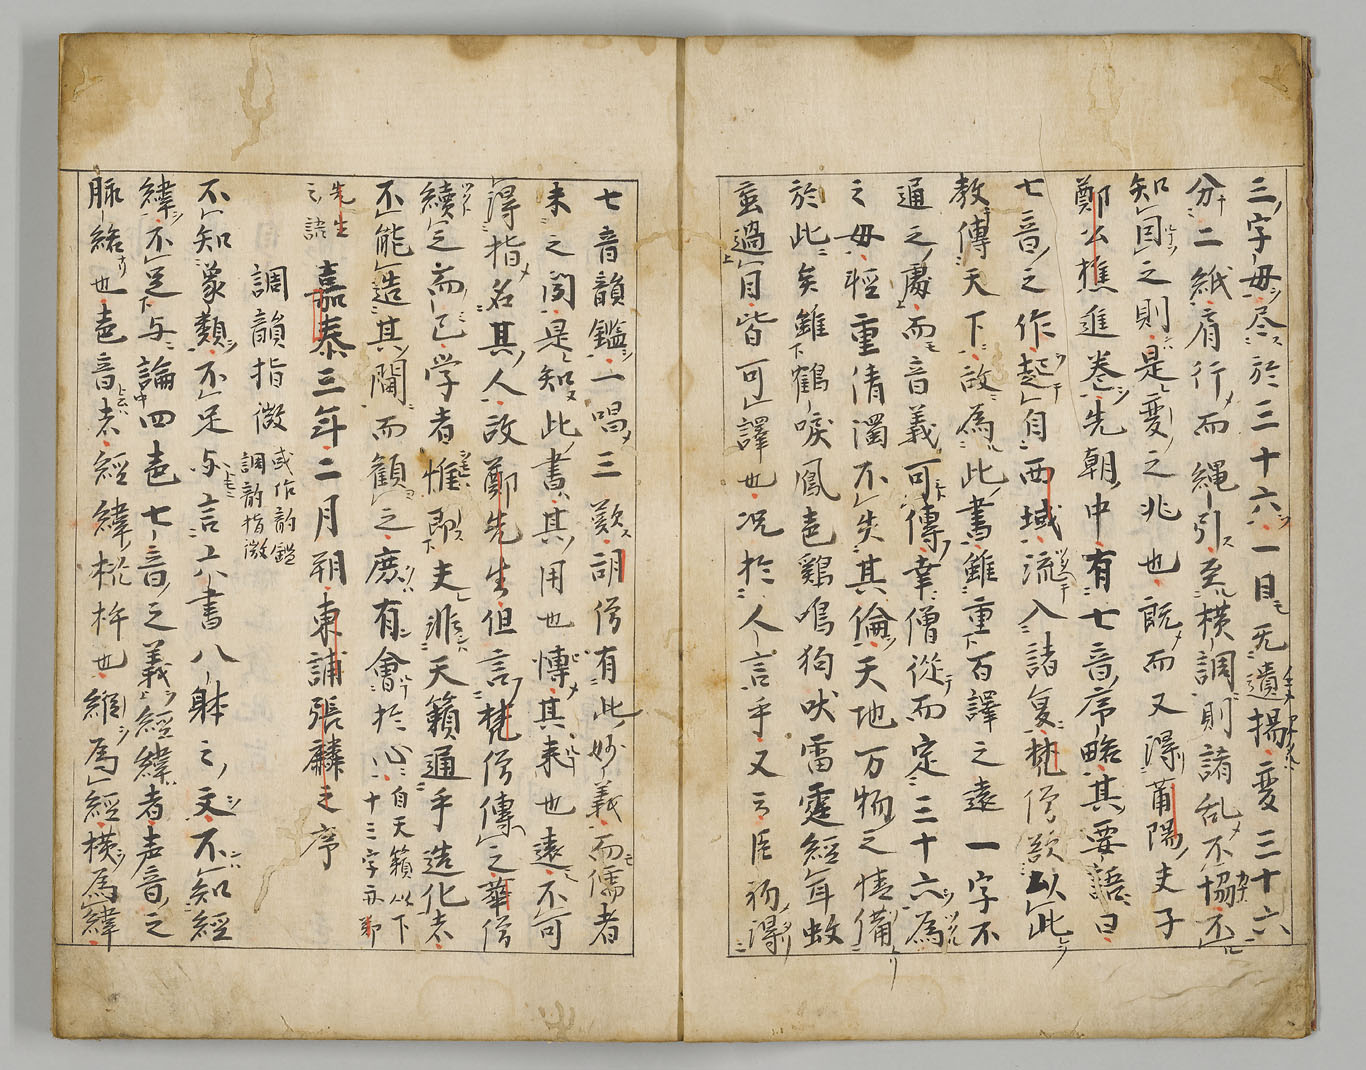 三字母尽於三十六一目无遺揚変三十六
分二紙肩行而縄引至横調則諸乱不協不
知因之則是変之兆也既而又得莆陽夫子
鄭公樵進巻先朝中有七音序略其要語曰
七音之作起自西域流入諸夏梵僧欲以此
教傳天下故為此書雖重百譯之遠一字不
通之處而音義可傳華僧從而定三十六為
之母軽重清濁不失其倫天地万物之情備
於此矣雖鶴唳風声鶏鳴狗吠雷霆經耳蚊
䖟過目皆可譯也况於人言乎又云臣初得
七音韻鑑一唱三歎胡僧有此妙義而儒者
未之聞是知此書其用也博其来也遠不可
得指名其人故鄭先生但言梵僧傳之華僧
續之而已学者惟即夫非天籟通乎造化者
不能造其閫而観之庶有會於心 自天籟以下
十三字再弟
先生
之語
嘉泰三年二月朔東誧張麟之序
調韻指微 或作韵鑑
調韵指微
不知象類不足与言六書八躰之文不知經
緯不足与論四声七音之義經緯者声音之
脉絡也声音者經緯杼也縦為經横為緯